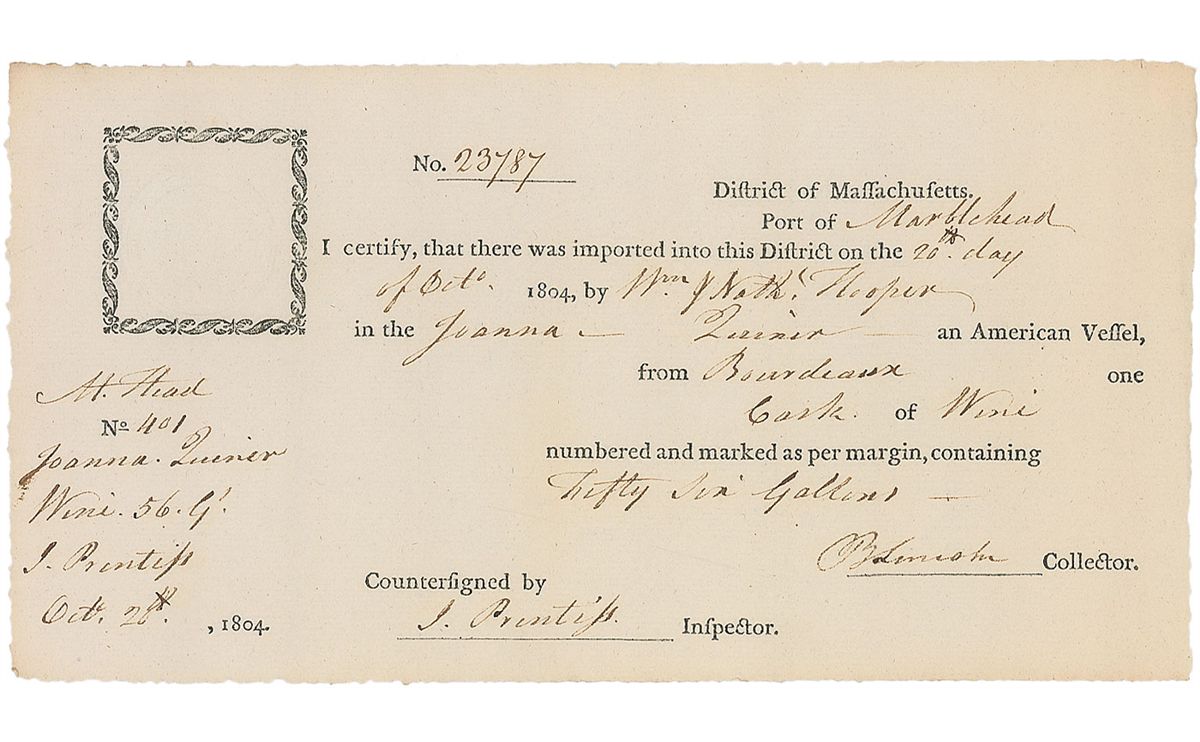 No. 23787
Diſtrict of Maſſachuſetts.
Port of Marblehead
I certify, that there was imported into this Diſtrict on the 20th. day
of Octo. 1804, by Wm & Nathl. Hooper
in the Joanna — Quiner — an American Veſſel,
from Bourdeaux one
Cask. of Wine
numbered and marked as per margin, containing
Fifty Six Gallons —
B Lincoln Collector.
Counterſigned by
J. Prentiſs. Inſpector.
M. Head
No 401
Joanna. Quiner
Wine. 56. Gs.
J. Prentiſs
Octo. 20th. , 1804.